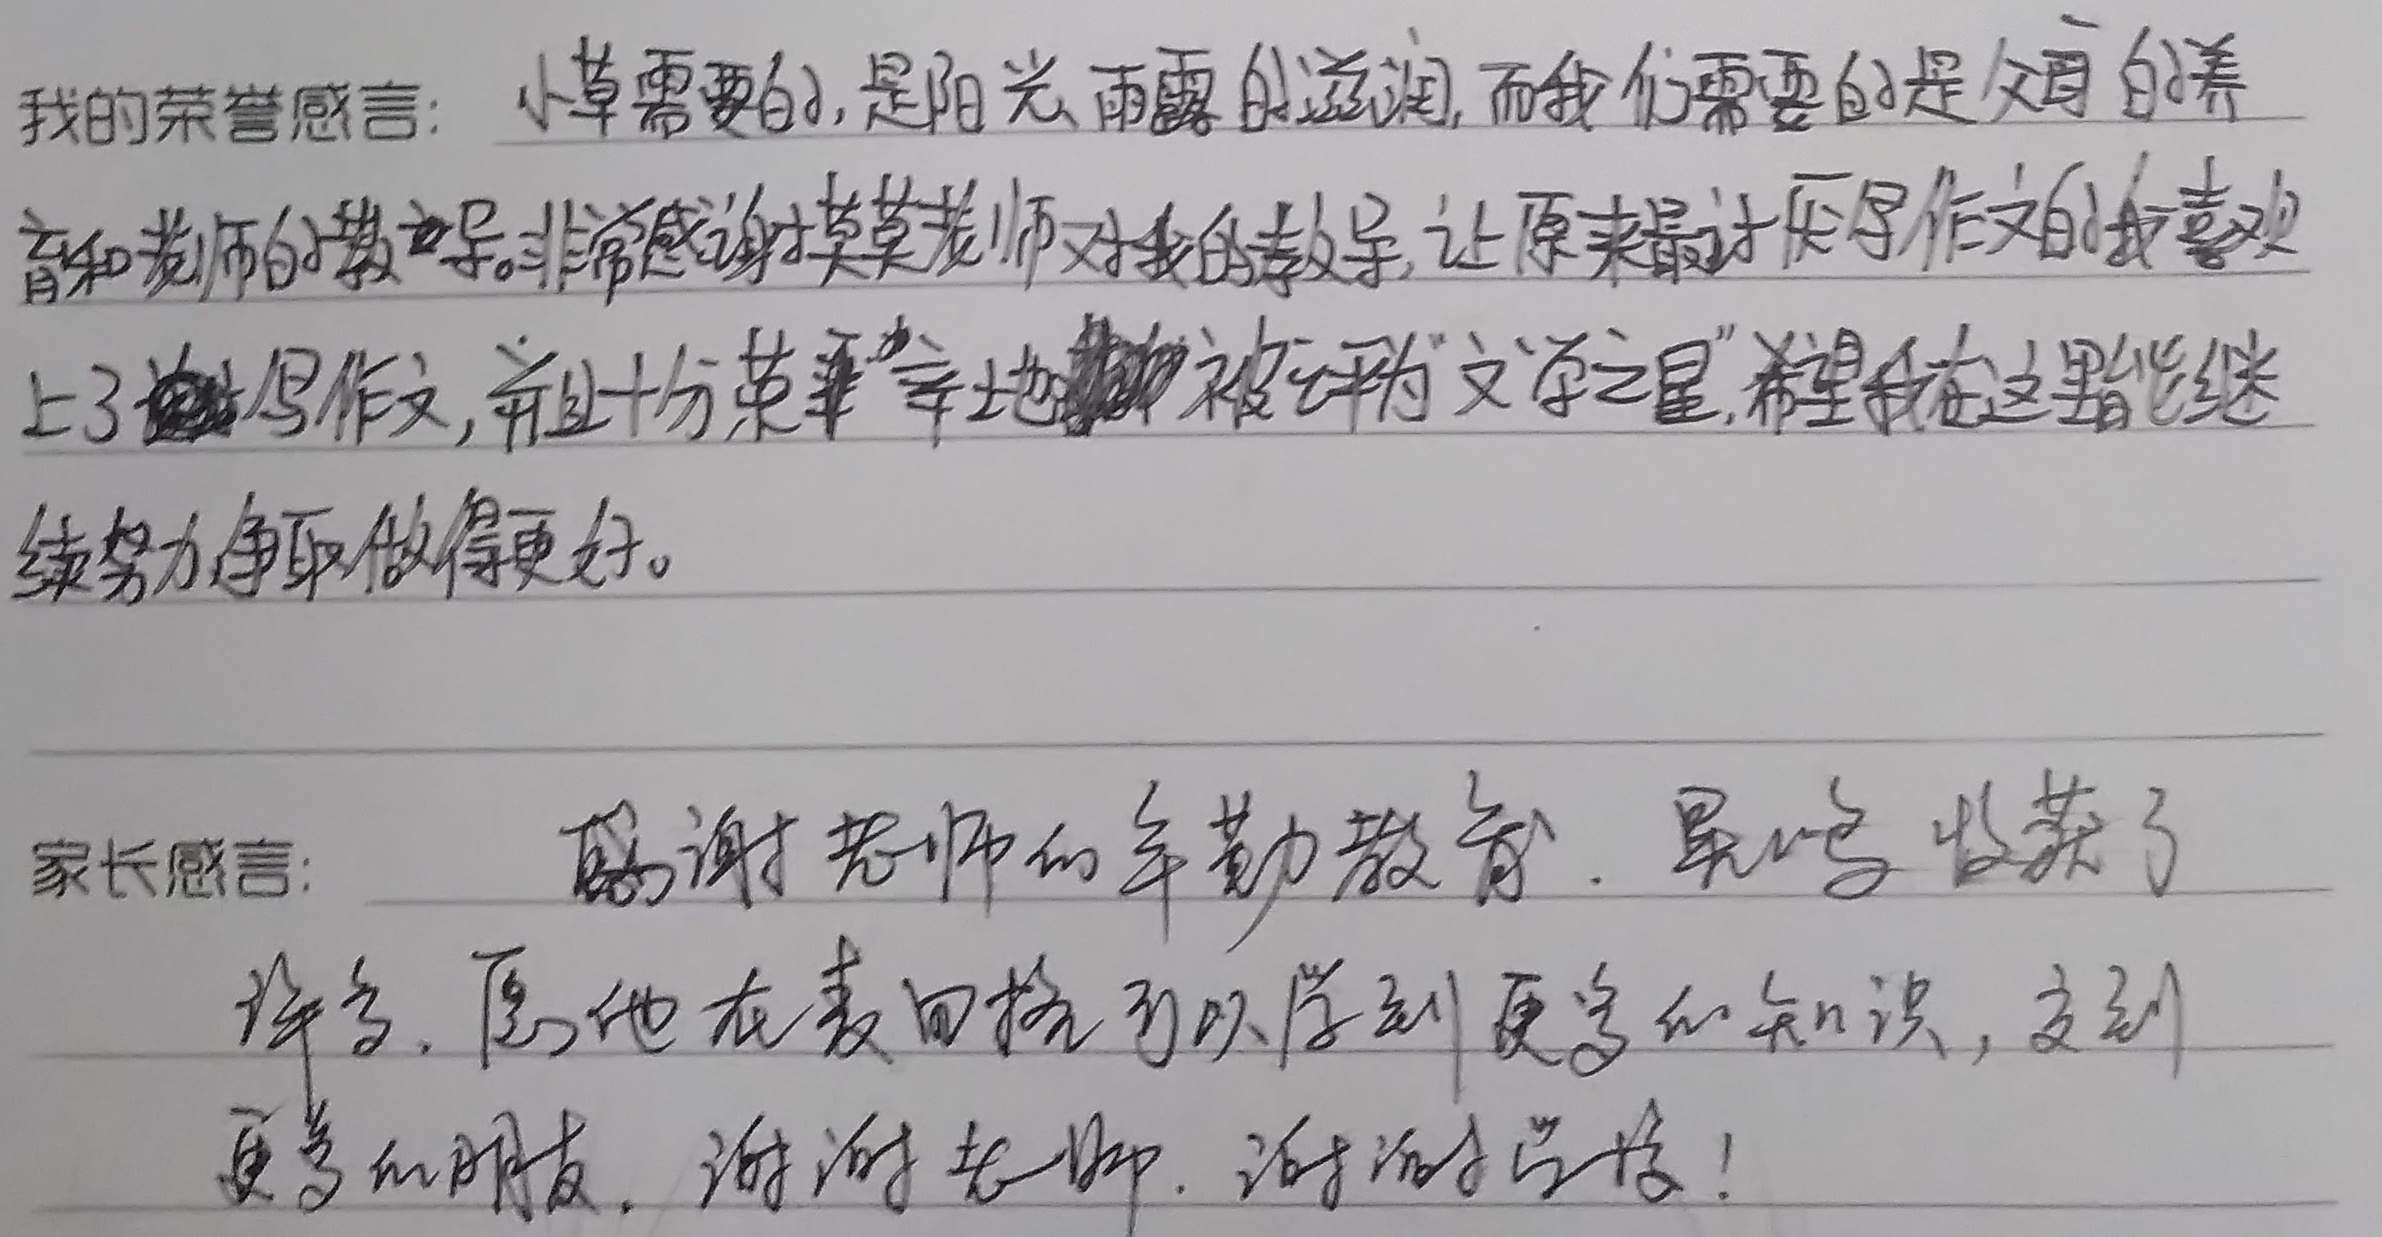 我的荣誉感言: 小草需要的,是阳光、雨露的滋润,而我们需要的是父母的养
育和老师的教导。非常感谢莫莫老师对我的教导,让原来最讨厌写作文的我喜欢
上了写作文,并且十分荣幸地被评为“文学之星”,希望我在这里能继
续努力,争取做得更好。
家长感言: 感谢老师的辛勤教育. 昊鸣收获了
许多. 愿他在麦田格可以学到更多的知识,交到
更多的朋友. 谢谢老师. 谢谢学校!